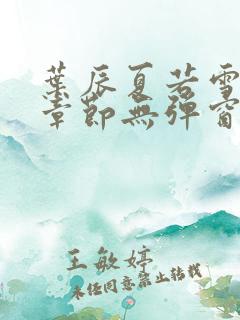 葉辰夏若雪
章節無彈窗
王敏婷
未經同意禁止轉載